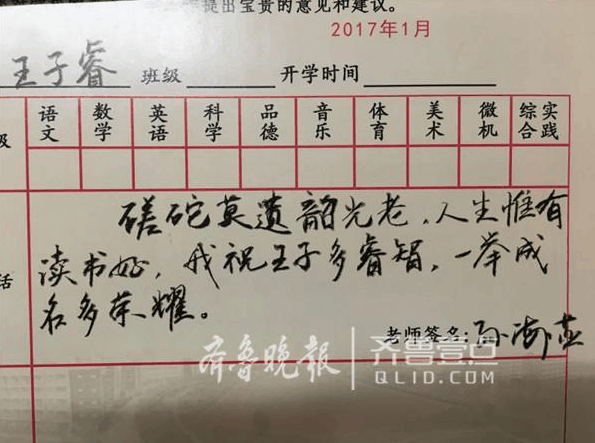 提出宝贵的意见和建议。
2017年1月
王子睿 班级 开学时间
级 语文 数学 英语 科学 品德 音乐 体育 美术 微机 综合实践
磋砣莫遗韶光老，人生惟有
读书好，我祝王子多睿智，一举成
话 名多荣耀。
老师签名:
齐鲁晚报 齐鲁壹点
QLID.COM